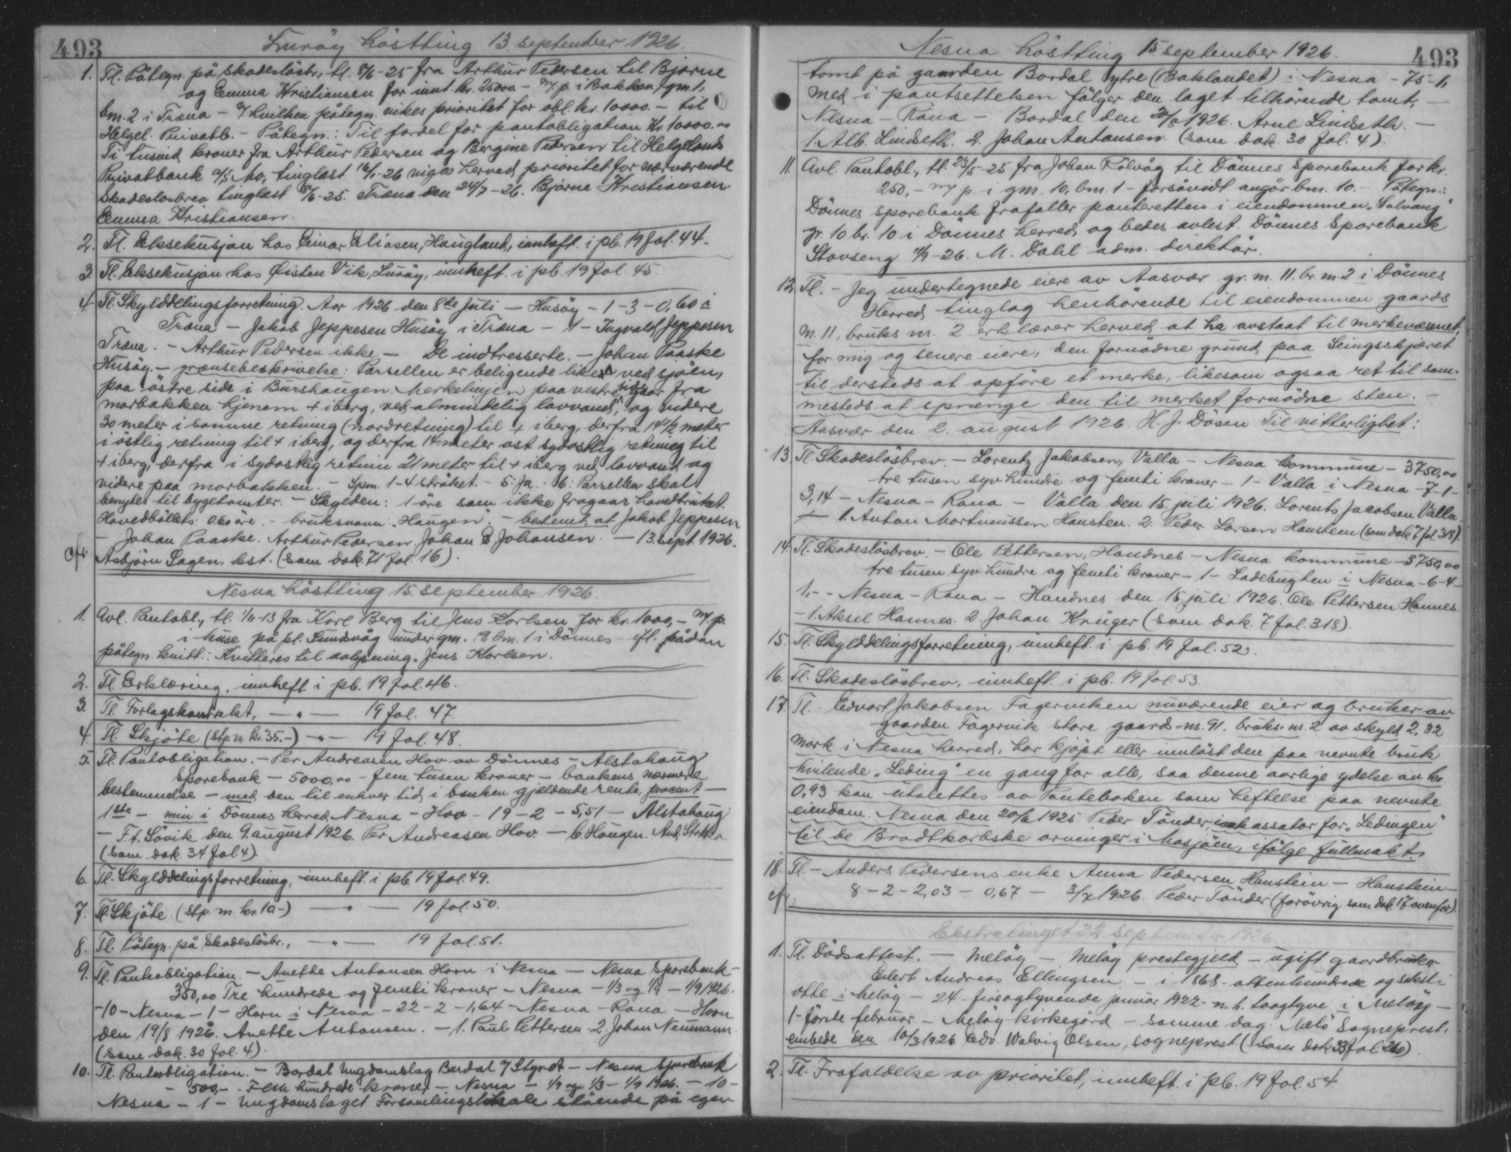 493
Lurøy høstting 13 september 1926.
1. Tl. Påtegn. på skadesløsbr., tl. 8/6-25 fra Arthur Pedersen til Bjarne
og Emma Kristiansen for innt. kr. 25000 - m/ p. i Bakken, gm. 1,
bm. 2 i Træna - påtegn. vikes prioritet for obl. kr. 10000.- til
Helgel. Privatb. - Påtegn.: Til fordel for pantobligation Kr. 10000.00
Ti tusind kroner fra Arthur Pedersen og Bergine Pedersen til Helgelands
Privatbank tinglæst -26 viges herved prioritet for nærværende
Skadesløsbrev tinglæst 8/6-25. Træna den 24/7-26. Bjarne Kristiansen
Emma Kristiansen.
2. Tl. Eksekusjon hos Einar Eliasen, Haugland, innheft. i pb. 19 fol. 44.
3 Tl. Eksekusjon hos Øisten Vik, Lurøy, innheft. i pb. 19 fol. 45.
4. Tl. Skylddelingsforretning. Aar 1926 den 8de juli - Husøy - 1-3-0,60 i
Træna - Jakob Jeppesen Husøy i Træna - 1 - Ingvald Jeppesen
Træna. - Arthur Pedersen ikke - De indtresserte. - Johan Paaske
Husøy. - grænsebeskrivelse: Parsellen er beligende like ved sjøen,
paa østre side i Burshaugen. Merkelinjen paa vestre side gaar fra
marbakken gjenem + i berg, ved almindelig lavvand, og videre
30 meter i samme retning (nordretning) til + i berg, derfra 14 1/2 meter
i østlig retning til + i berg, og derfra 14 meter øst sydøstlig retning til
+ i berg, derfra i sydøstlig retning 21 meter til + i berg ved lavvand og
videre paa marbakken. - Spm. 1-4 strøket. - 5. Ja. - 6. Parsellen skal
benyttes til bygtomter. - Skylden: 1 øre som ikke fragaar hovedbruket.
Hovedbøllets: 0.60 øre. - bruksnavn: "Haugen". - bestemt at Jakob Jeppesen
- Johan Paaske. Arthur Pedersen. Johan E Johansen. - 13. sept. 1926.
cfr. Asbjørn Lagen. kst. (Som dok. 71 fol. 16).
Nesna høstting 15 september 1926.
1. Avl. Pantobl., tl. 1/10-13 fra Karl Berg til Jens Karlsen for kr. 1000,- m/ p.
i huse på pl. Sundvåg under gm. 19 bm. 1 i Dønnes - ifl. sådan
påtegn. kvitt.: Kvitteres til avlysning. Jens Karlsen.
2. Tl. Erklæring, innheft i pb. 19 fol. 46.
3. Tl. Forlagskontrakt, - " - 19 fol. 47
4. Tl. Skjøte (stp. m. kr. 35.-) - " - 19 fol. 48.
5. Tl. Pantobligation. - Per Andreasen Hov av Dønnes - Alstahaug
Sparebank - 5000,00 - fem tusen kroner - bankens nærmere
bestemmelse - med den til enhver tid i banken gjeldende rente procent -
1ste - min i Dønnes herred Nesna - Hov - 19 - 2 - 5,51 - Alstahaug
- P.t. Søvik den 9. august 1926. Per Andreasen Hov. -
(Som dok. 34 fol. 4).
6. Tl. Skylddelingsforretning, innheft i pb. 19 fol. 49.
7. Tl. Skjøte (Stp. m. kr. 10.-) - " - 19 fol. 50.
8. Tl. Påtegn. på Skadesløsbr., - " - 19 fol. 51.
9. Tl. Pantobligation. - Anette Antonsen Horn i Nesna - Nesna Sparebank -
350,00 Tre hundrede og femti kroner - Nesna - 1/3 og 1/9 - 1/9 1926.
- 10 - Nesna - 1 - Horn i Nesna - 22 - 2 - 1,64 - Nesna - Rana - Horn
den 19/8 1926. Anette Antonsen. - 1. Paul Pettersen. 2. Johan Neumann
(Som dok. 30 fol. 4).
10. Tl. Pantobligation. - Bardal Ungdomslag Bardal v/ Styret - Nesna Sparebank
- 500,- Fem hundrede kroner - Nesna - 1/9 og 1/3 - 1/9 1926. - 10 -
Nesna - 1 - Ungdomslaget Forsamlingslokale stående på egen
493
Nesna høstting 15 september 1926.
tomt på gaarden Bardal ytre (Baklandet) i Nesna - 75-1,
Med i pantsettelsen følger den laget tilhørende tomt, -
Nesna - Rana - Bardal den 1926 Arne Lindseth. -
1. Alb. Lindseth. 2. Johan Antonsen (Som dok. 30 fol. 4).
11. Avl. Pantobl., tl. 23/5-25 fra Johan Rølvåg til Dønnes Sparebank for kr.
250,- m/ p. i gm. 10, bm. 1 - forsåvidt angår bm. 10. - Påtegn.:
Dønnes Sparebank frafaller panteretten i eiendommen "Solvang"
gr. 10 br. 10 i Dønnes herred og bedes avlest. Dønnes Sparebank
Stavseng -26. M. Dahl adm. direktør.
12. Tl. - Jeg undertegnede eiere av Aasvær gr. m. 11. br. m 2 i Dønnes
Herred tinglag henhørende til eiendommen gaards
m. 11, bruks m. 2 erklærer herved at ha avstaat til merkevæsenet,
for mig og senere eiere, den fornødne grund paa Leingsskjæret
til dersteds at opføre et merke, likesom ogsaa ret til sam-
mesteds at sprænge den til merket fornødne sten. -
Aasvær den 2. august 1926. H. J. Døsen. Til vitterlighet:
13. Tl. Skadesløsbrev. - Lorentz Jakobsen, Valla - Nesna kommune - 3750,00
tre tusen syv hundre og femti kroner - 1 - Valla i Nesna - 7-1-
3,14 - Nesna - Rana - Valla den 15. juli 1926. Lorents Jacobsen Valla
- 1. Anton Mortinussen Hansten. 2. Peder Larsen Hanstein (som dok. 7 fol. 318).
14. Tl. Skadesløsbrev. - Ole Pettersen, Handnes - Nesna kommune - 3750,00
tre tusen syv hundre og femti kroner - 1 - Ladebugten i Nesna - 6-4-
1.- - Nesna - Rana - Handnes den 15. juli 1926. Ole Pettersen Hannes
- 1. Aksel Hannes. 2. Johan Krüger (Som dok. 7 fol. 318).
15. Tl. Skylddelingsforretning, innheft. i pb. 19 fol. 52.
16. Tl. Skadesløsbrev, innheft. i pb. 19 fol. 53.
17. Tl. - Edvart Jakobsen Fagerviken nuværende eier og bruker av
gaarden Fagervik store gaards-m. 91. bruks m. 2 av skyld 2,32
mark i Nesna herred, har kjøpt eller innløst den paa nevnte bruk
hvilende "Leding" en gang for alle, saa denne aarlige ydelse av kr.
0,93 kan utslettes av Panteboken som heftelse paa nevnte
eiendom. Nesna den 20/6 1925 Peder Tønder, inkassator for "Ledingen"
til de Brodtkorbske arvinger i Mosjøen, ifølge fullmakt.
18. Tl. - Anders Pedersens enke Anna Pedersen Hanstein - Hanstein -
cfr. 8 - 2 - 2,03 - 0,67 - 3/7 1926. Peder Tønder (forøvrig som dok. 17 ovenfor)
Ekstratinget 22. september 1926
1. Tl. Dødsattest. - Meløy - Meløy prestegjeld - ugift gaardbruker
Edert Andreas Ellingsen - i 1868 - attenhundrede og seksti-
otte i Meløy - 24 - fireogtyvende januar 1922 - n. h. toogtyve i Meløy -
1 - første februar - Meløy kirkegård - samme dag. Meløy Sogneprest.
embede den 10/3 1926 Edv. Walvig Olsen, sogneprest (Som dok. 33 fol. 26).
2. Tl. Frafaldelse av prioritet, innheft. i pb. 19 fol. 54